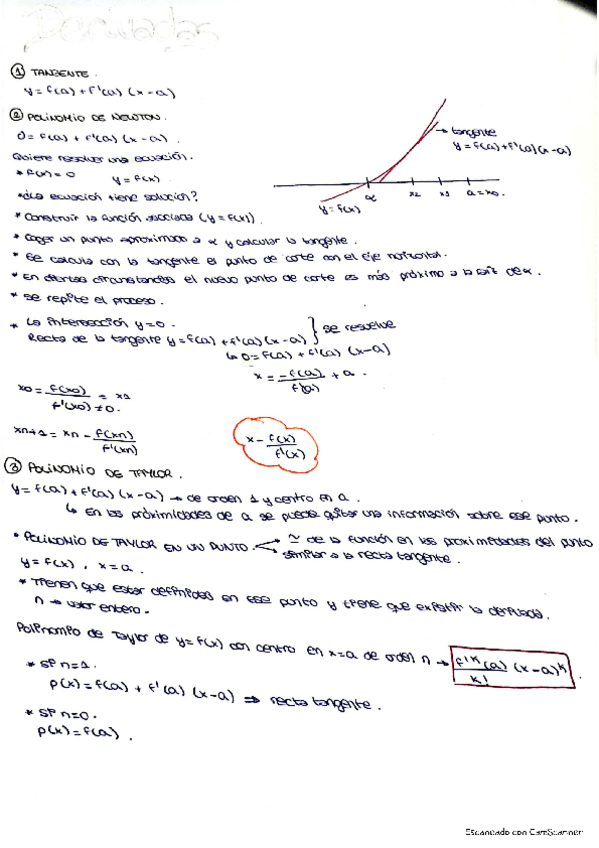 Derivadas
① TANGENTE.
y = f(a) + f'(a) (x - a)
② POLINOMIO DE NEWTON.
0 = f(a) + f'(a) (x - a).
Quiere resolver una ecuación.
* f(x) = 0 y = f(x)
* ¿La ecuación tiene solución?
* Construir la función asociada (y = f(x)).
→ tangente
y = f(a) + f'(a) (x - a)
α x2 x1 a = x0.
y = f(x)
* Coger un punto aproximado a α y calcular la tangente.
* Se calcula con la tangente el punto de corte con el eje horizontal.
* En ciertas circunstancias el nuevo punto de corte es más próximo a la raíz de α.
* Se repite el proceso.
* La intersección y = 0.
Recta de la tangente y = f(a) + f'(a) (x - a) } se resuelve
↳ 0 = f(a) + f'(a) (x - a)
x = -f(a)/f'(a) + a.
x0 = f(x0)/f'(x0) ≠ 0. = x1
xn+1 = xn - f(xn)/f'(xn)
x - f(x)/f'(x)
③ POLINOMIO DE TAYLOR.
y = f(a) + f'(a) (x - a) → de orden 1 y centro en a.
↳ En las proximidades de a se puede quitar una información sobre ese punto.
* POLINOMIO DE TAYLOR EN UN PUNTO. ≃ de la función en las proximidades del punto
similar a la recta tangente.
y = f(x), x = a.
* Tienen que estar definidas en ese punto y tiene que existir la derivada.
n → valor entero.
Polinomio de Taylor de y = f(x) con centro en x = a de orden n → f'K (a) (x - a)^K / K!.
* Si n = 1.
p(x) = f(a) + f'(a) (x - a) ⇒ recta tangente.
* Si n = 0.
p(x) = f(a).
Escaneado con CamScanner